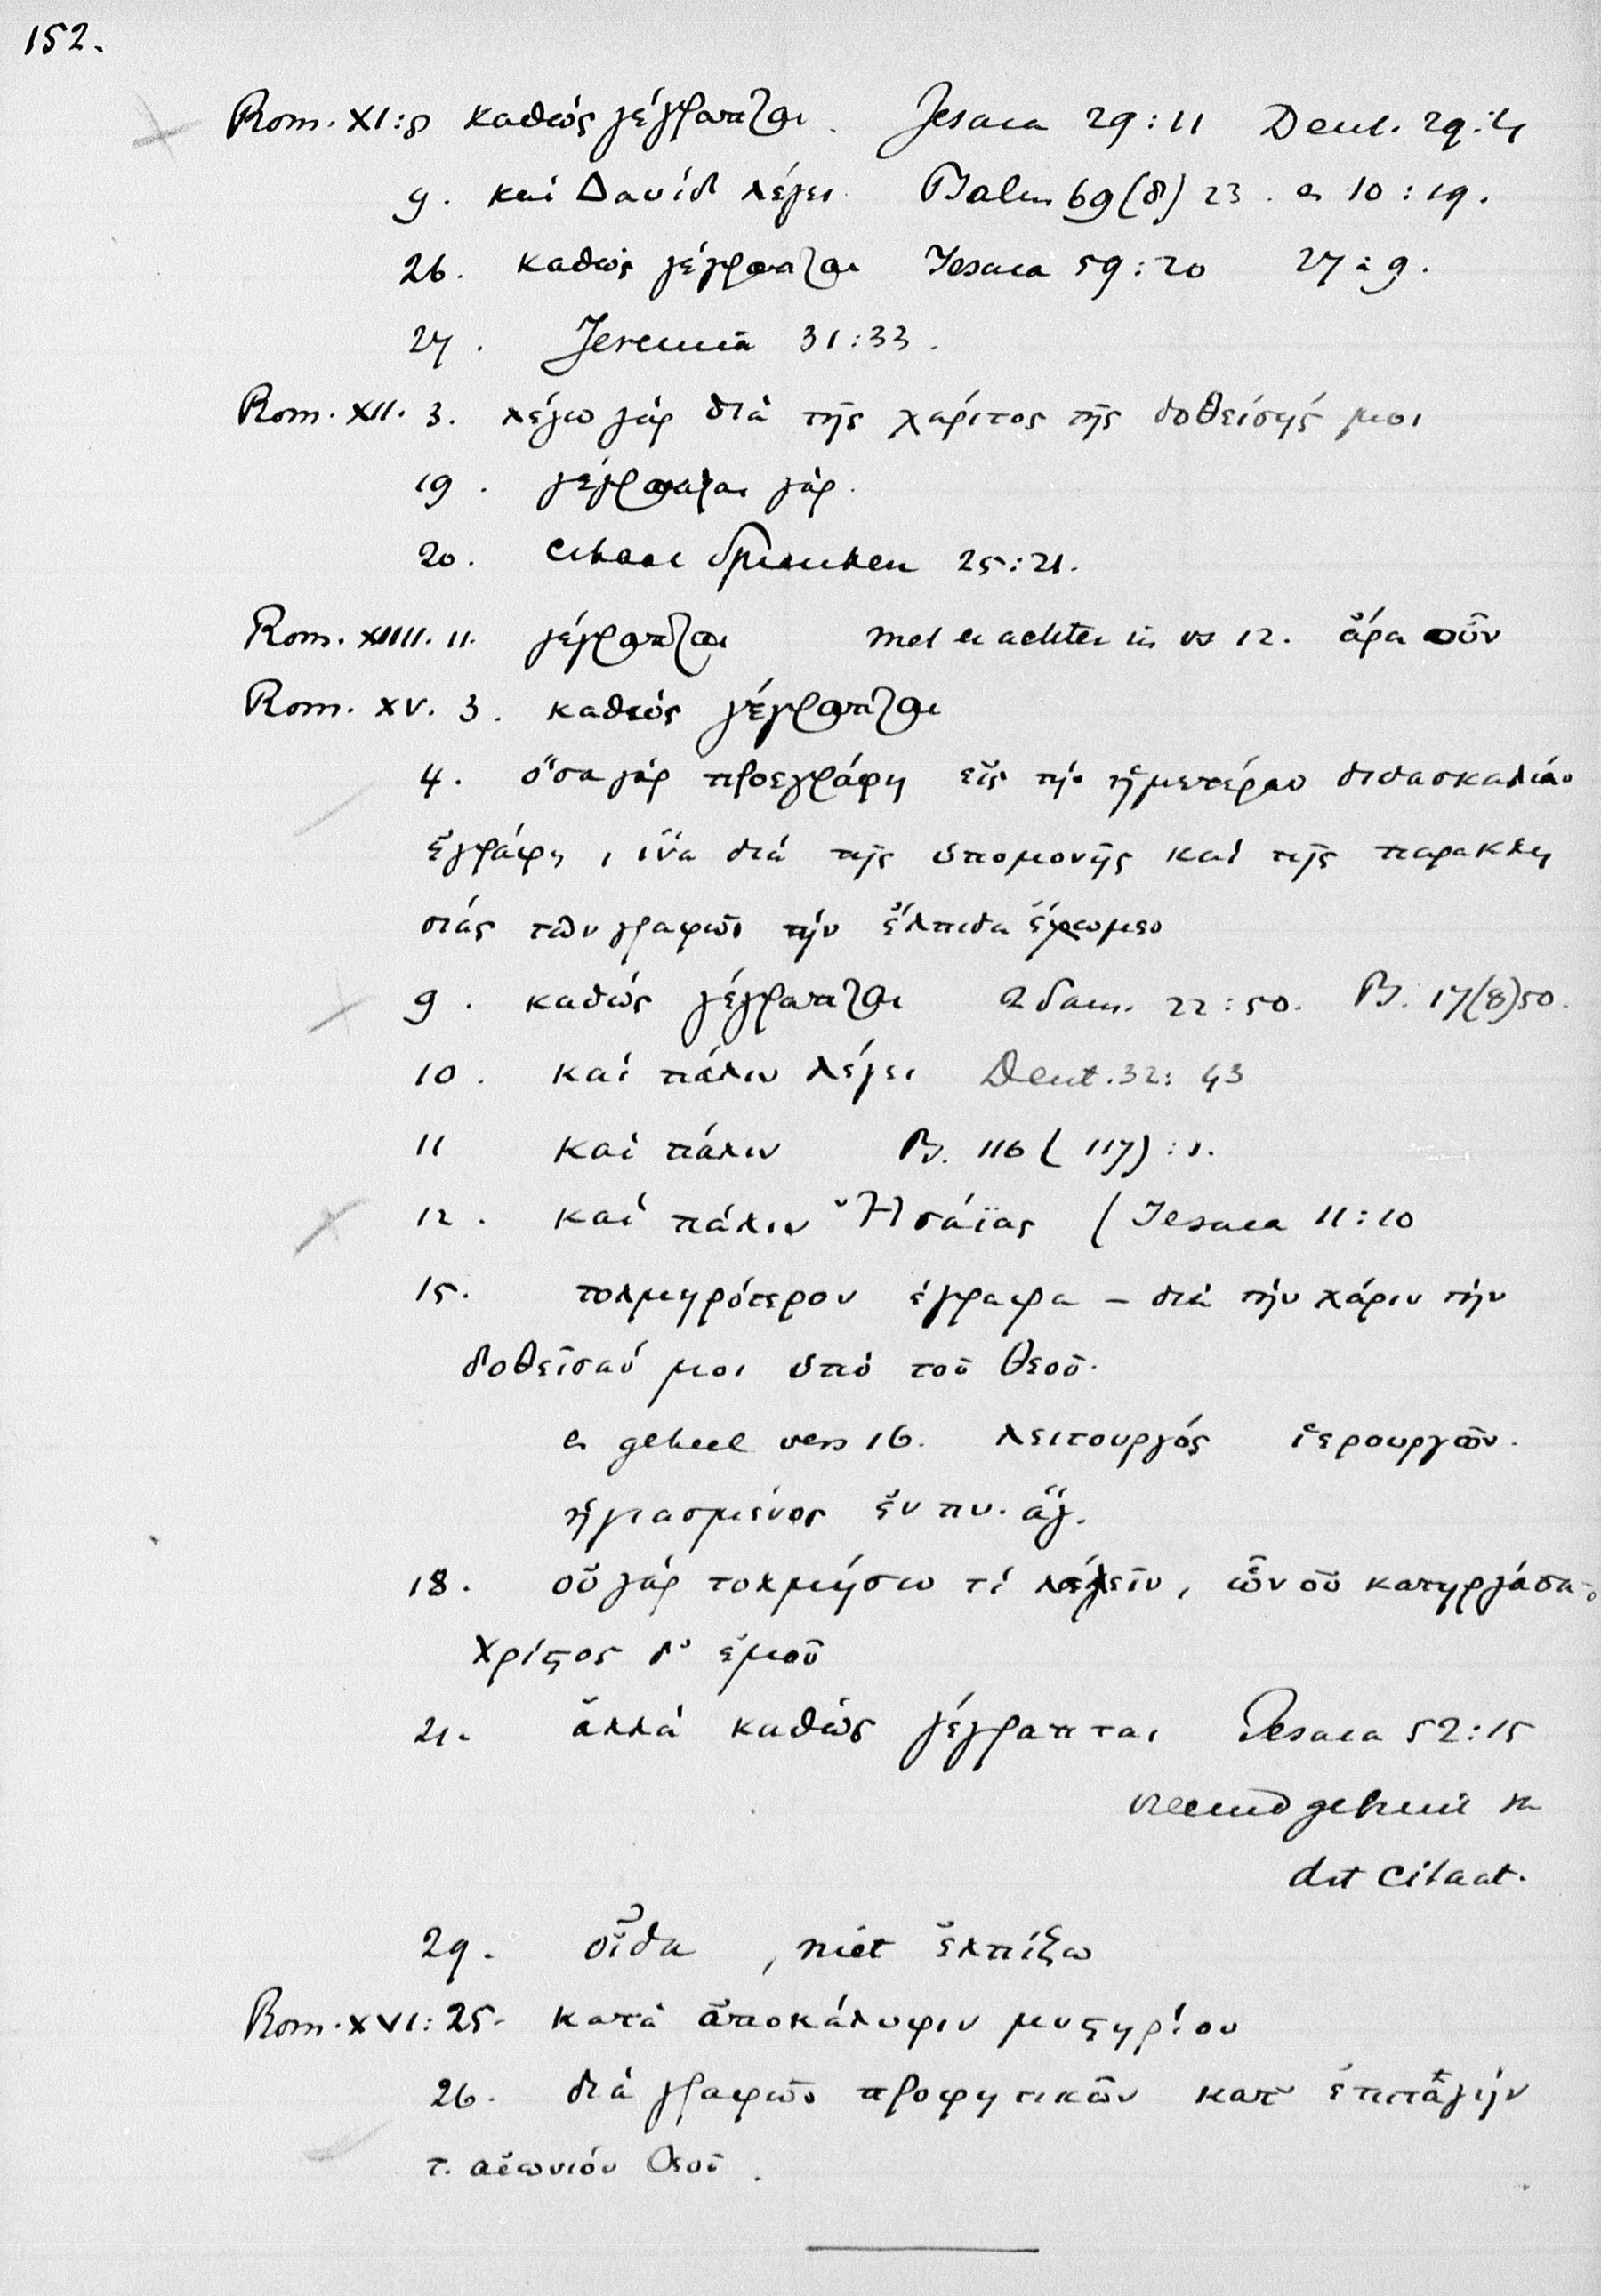 152.
Rom. XI:8 καθὼς γέγραπται. Jesaia 29:11 Deut. 29:4
9. καὶ Δαυίδ λέγει Psalm 69(8) 23. en 10:19.
26. καθὼς γέγραπται Jesaia 59:20 27:9.
27. Jeremia 31:33.
Rom. XII. 3. λέγω γάρ διὰ τῆς χάριτος τῆς δοθείσής μοι
19. γέγραπται γάρ.
20. citaat Spreuken 25:21.
Rom. XIIII. 11. γέγραπται met er achter in vs 12. ἄρα οὖν
Rom. XV. 3. καθὼς γέγραπται
4. ὅσα γάρ προεγράφη εἰς τὴν ἡμετέραν διδασκαλίαν
ἐγράφη, ἵνα διά τῆς ὑπομονῆς καὶ τῆς παρακλη
σιάς των γραφῶν τὴν ἔλπιδα ἔχωμεν
9. καθὼς γέγραπται 2 Sam. 22:50. Ps. 17(8)50.
10. καὶ πάλιν λέγει Deut. 32:43
11 καὶ πάλιν Ps. 116 (117):1.
12. καὶ πάλιν Ἠσάϊας (Jesaia 11:10
15. τολμηρότερον ἐγραψα – διὰ τὴν χάριν τὴν
δοθεῖσαν μοι ὑπὸ τοῦ θεοῦ.
en geheel vers 16. λειτουργός ἱερουργῶν.
ἡγιασμένος ἐν πν. ἅγ.
18. οὐ γάρ τολμήσω τί λέγεῖν, ὧν οὐ κατηργάσατο
Χρίϛος δ' ἐμοῦ
21. ἀλλά καθὼς γέγραπται Jesaia 52:15
vreemd gebruik van
dit citaat.
29. οἶδα, niet ἐλπίζω
Rom. XVI: 25. κατὰ ἀποκάλυψιν μυϛηρίου
26. διά γραφῶν προφητικῶν κατ' ἐπιταγήν
τ. αἰωνιόυ Θεοῦ.